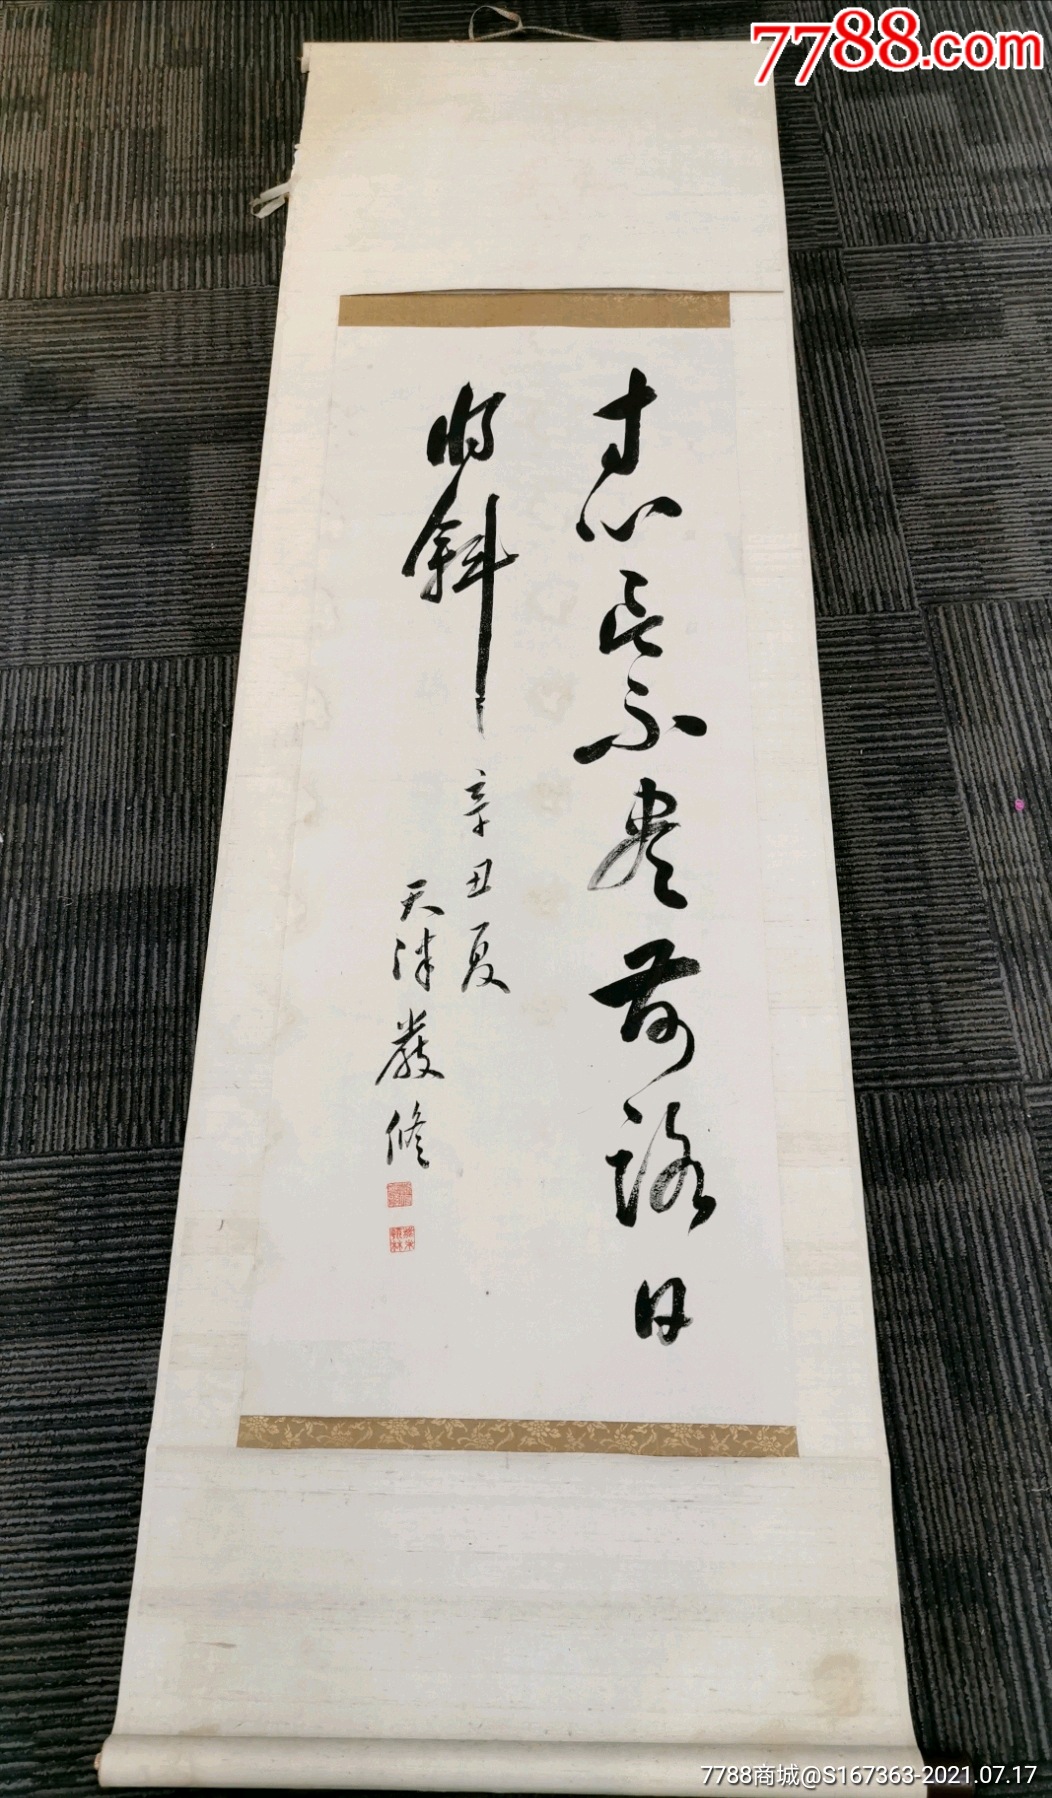 7788.com
寸心言不盡前路日
將斜
辛丑夏
天津嚴修
7788商城@S167363-2021.07.17